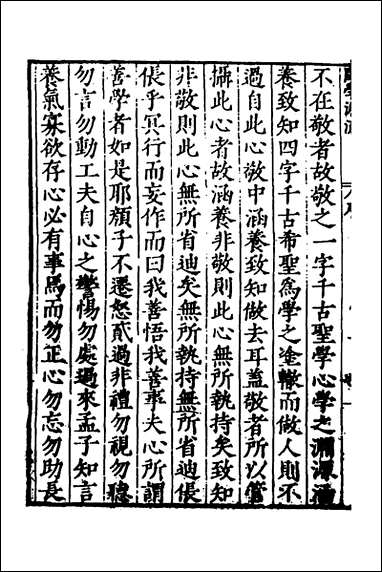 不在敬者故敬之一字千古聖學心學之淵源涵
養致知四字千古希聖爲學之途轍而做人則不
過自此心敬中涵養致知做去耳蓋敬者所以管
攝此心者故涵養非敬則此心無所持矣致知
非敬則此心無所省迪矣無所執持無所省迪倀
倀乎冥行而妄作而曰我善悟我善事夫心所謂
善學者如是耶顏子不遷怒貳過非禮勿視勿聽
勿言勿動工夫自心之警惕勿處過來孟子知言
養氣寡欲存心必有事焉而勿正心勿忘勿助長